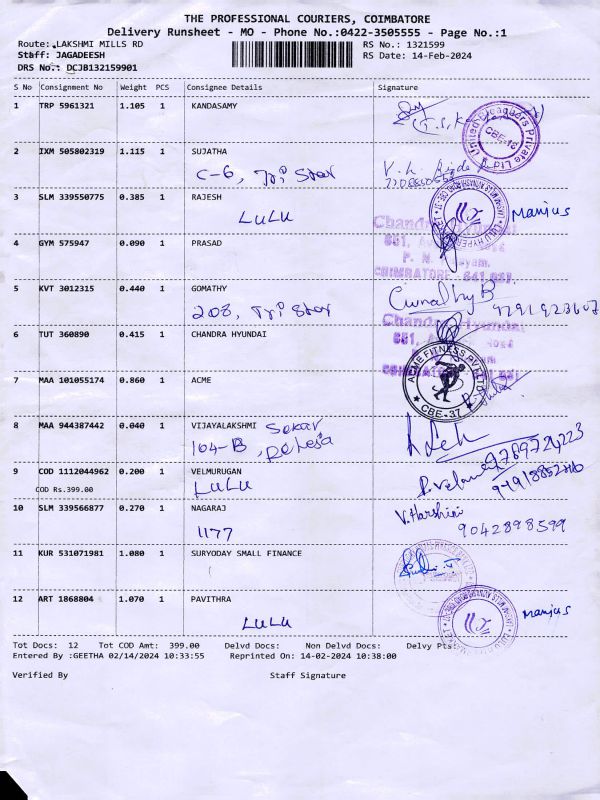 THE PROFESSIONAL COURIERS, COIMBATORE
Delivery Runsheet - MO - Phone No.:0422-3505555 - Page No.:1
Route: LAKSHMI MILLS RD
RS No.: 1321599
Staff: JAGADEESH
RS Date: 14-Feb-2024
DRS No.: DCJB132159901
S No Consignment No Weight PCS Consignee Details Signature
1 TRP 5961321 1.105 1 KANDASAMY
United Bleaguers Private Ltd CBE-18
2 IXM 505802319 1.115 1 SUJATHA
C-6, Tri Star
3 SLM 339550775 0.385 1 RAJESH
LULU
Manjus
4 GYM 575947 0.090 1 PRASAD
Chandra Hyundai
COIMBATORE
5 KVT 3012315 0.440 1 GOMATHY
208, Tri Star
Gomathy B
6 TUT 360890 0.415 1 CHANDRA HYUNDAI
Chandra Hyundai
7 MAA 101055174 0.860 1 ACME
ACME FITNESS PVT LTD CBE-37
8 MAA 944387442 0.040 1 VIJAYALAKSHMI Sekar
104-B, Raheja
9 COD 1112044962 0.200 1 VELMURUGAN
COD Rs.399.00
LULU
10 SLM 339566877 0.270 1 NAGARAJ
1177
V. Harshini
9042898599
11 KUR 531071981 1.080 1 SURYODAY SMALL FINANCE
12 ART 1868804 1.070 1 PAVITHRA
LULU
Manjus
Tot Docs: 12 Tot COD Amt: 399.00 Delvd Docs: Non Delvd Docs: Delvy Pts:
Entered By :GEETHA 02/14/2024 10:33:55 Reprinted On: 14-02-2024 10:38:00
Verified By Staff Signature